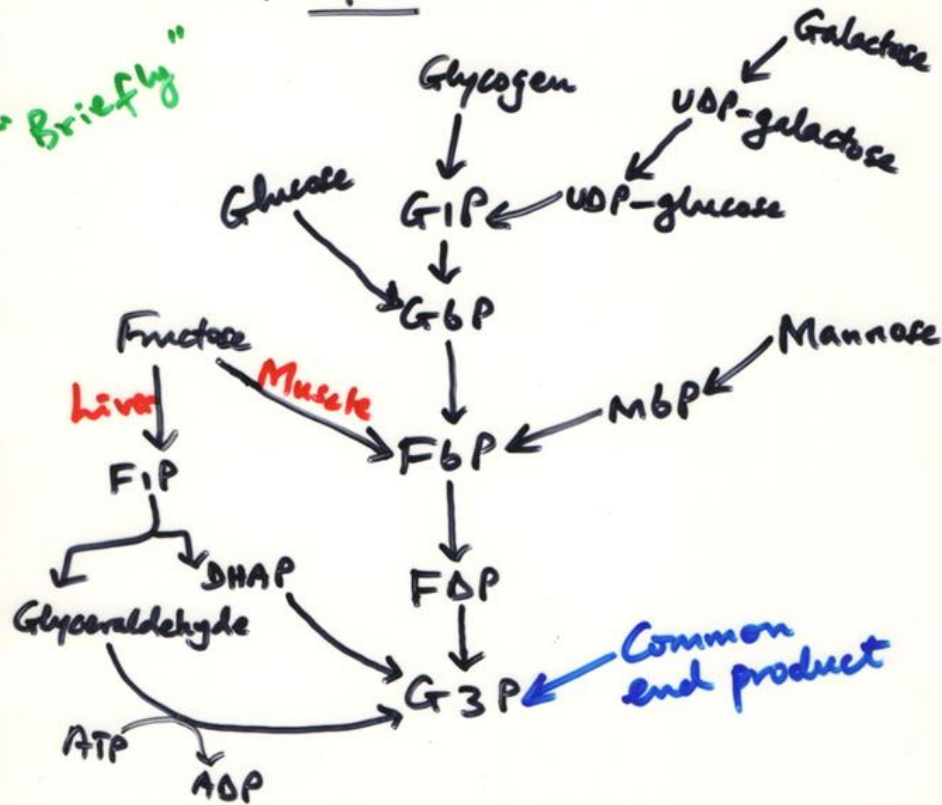 "Briefly"
Galactose
Glycogen
UDP-galactose
Glucose
G1P
UDP-glucose
G6P
Fructose
Mannose
Liver
Muscle
M6P
F6P
F1P
DHAP
FDP
Glyceraldehyde
Common
end product
G3P
ATP
ADP